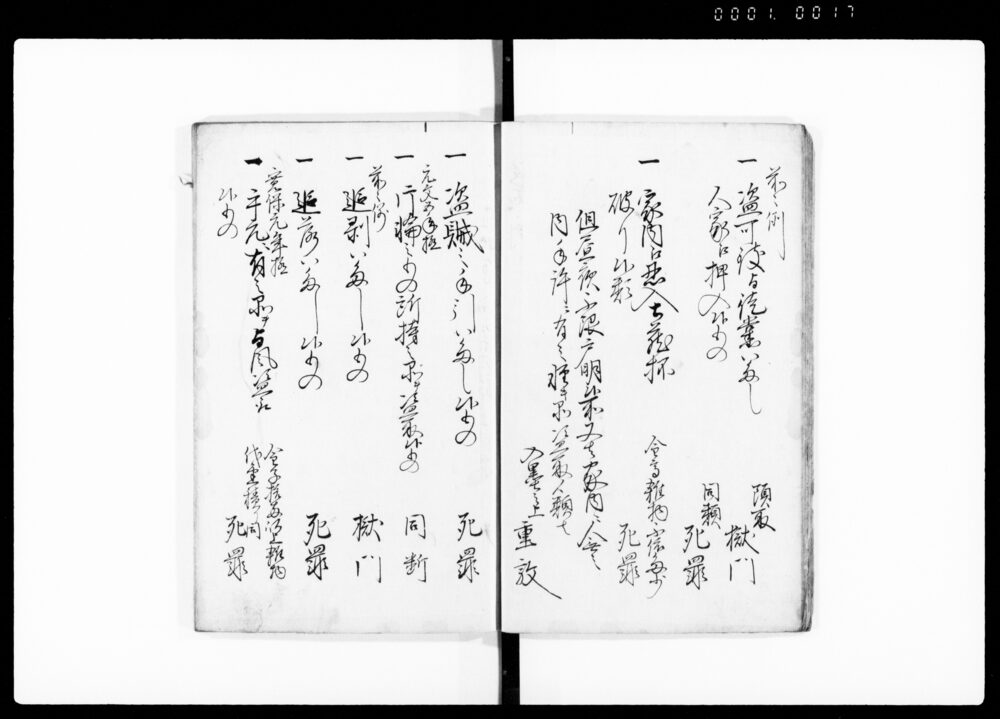 0001. 0017
前々例
一 盗可致与徒党いたし
人家江押入候もの
頭取 獄門
同類 死罪
一 家内江忍入土蔵抔
破り候類
金高雑物不依多少
死罪
但昼夜ニ不限戸明候所又者家内ニ人無之
内手許ニ有之軽キ品盗取候類者
入墨之上 重敲
一 盗賊之手引いたし候もの 死罪
元文五年極
一 片輪之もの所持之品盗取候もの 同断
前々例
一 追剥いたし候もの 獄門
一 追落いたし候もの 死罪
寛保元年極
一 手元ニ有之品与風盗取
候もの
金子拾両以上雑物
代金積り同
死罪